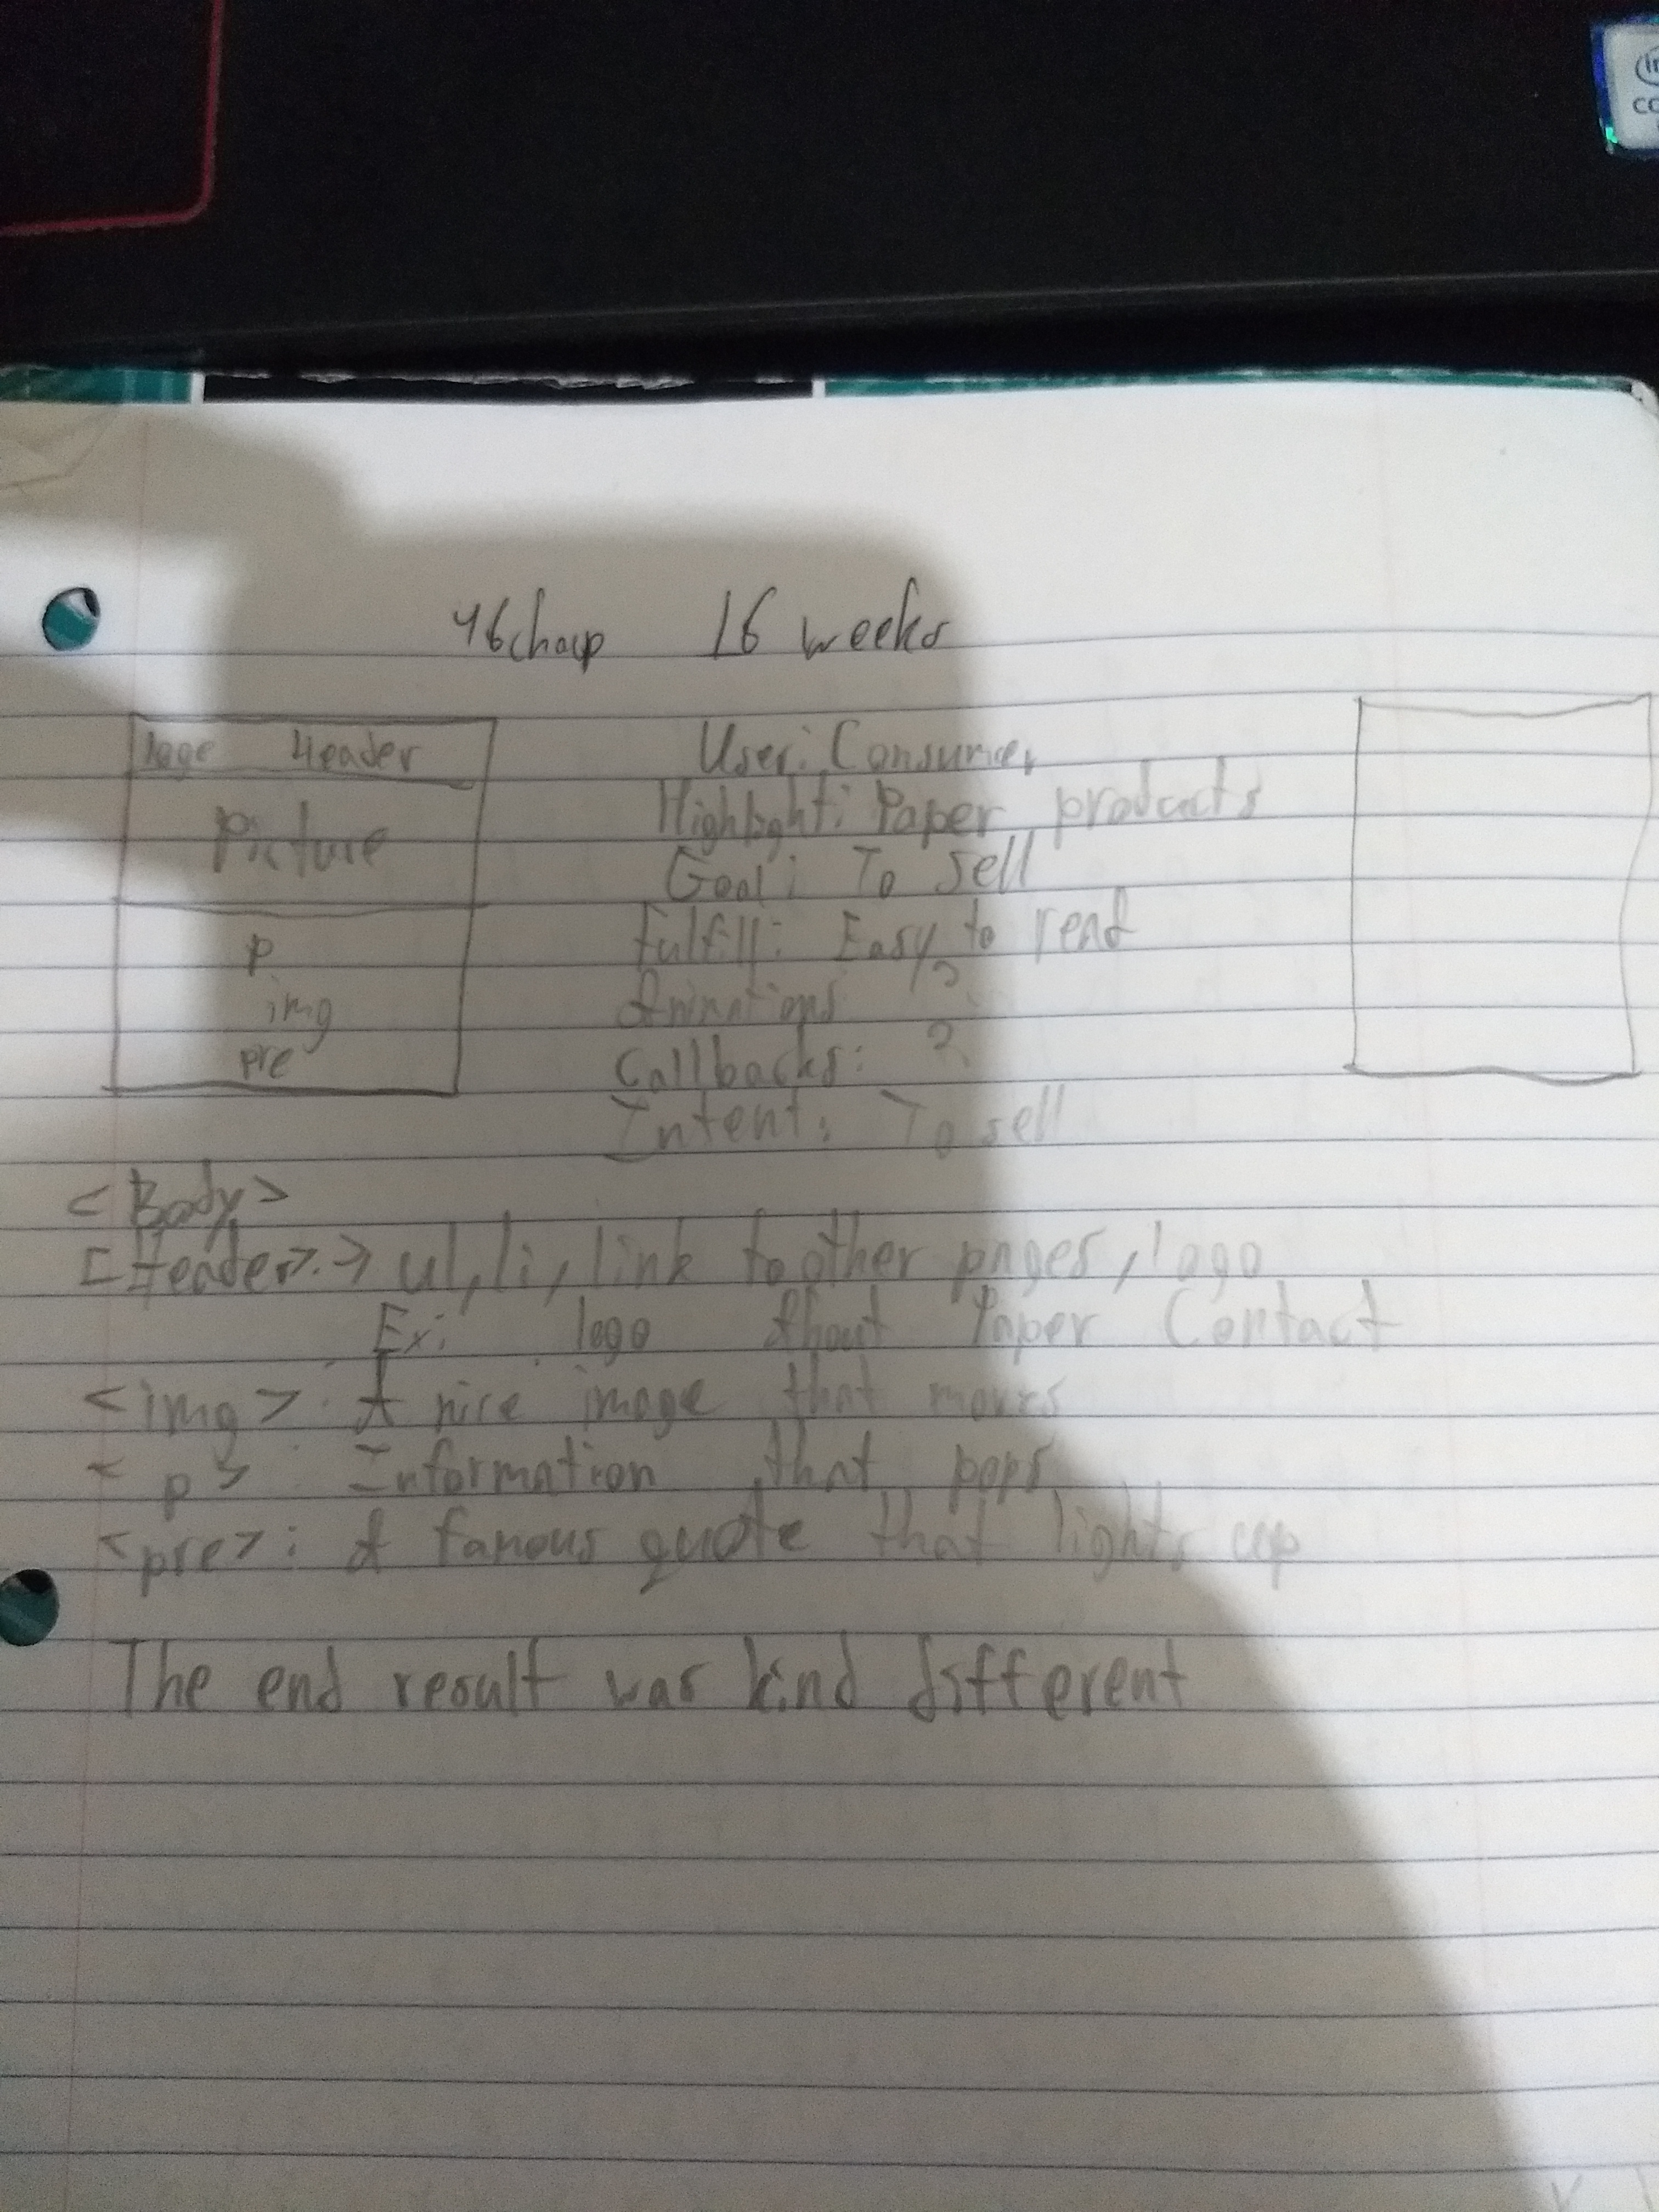 46chap 16 weeks
logo Header
Picture
p
img
pre
User: Consumer
Highlight: Paper products
Goal: To sell
Fulfill: Easy to read
Animations ?
Callbacks: ?
Intent: To sell
<Body>
[Header>:→ ul, li, link to other pages, logo
Ex: logo About Paper Contact
<img>: A nice image that moves
<p>: Information that pops
<pre>: A famous quote that lights up
The end result was kind different